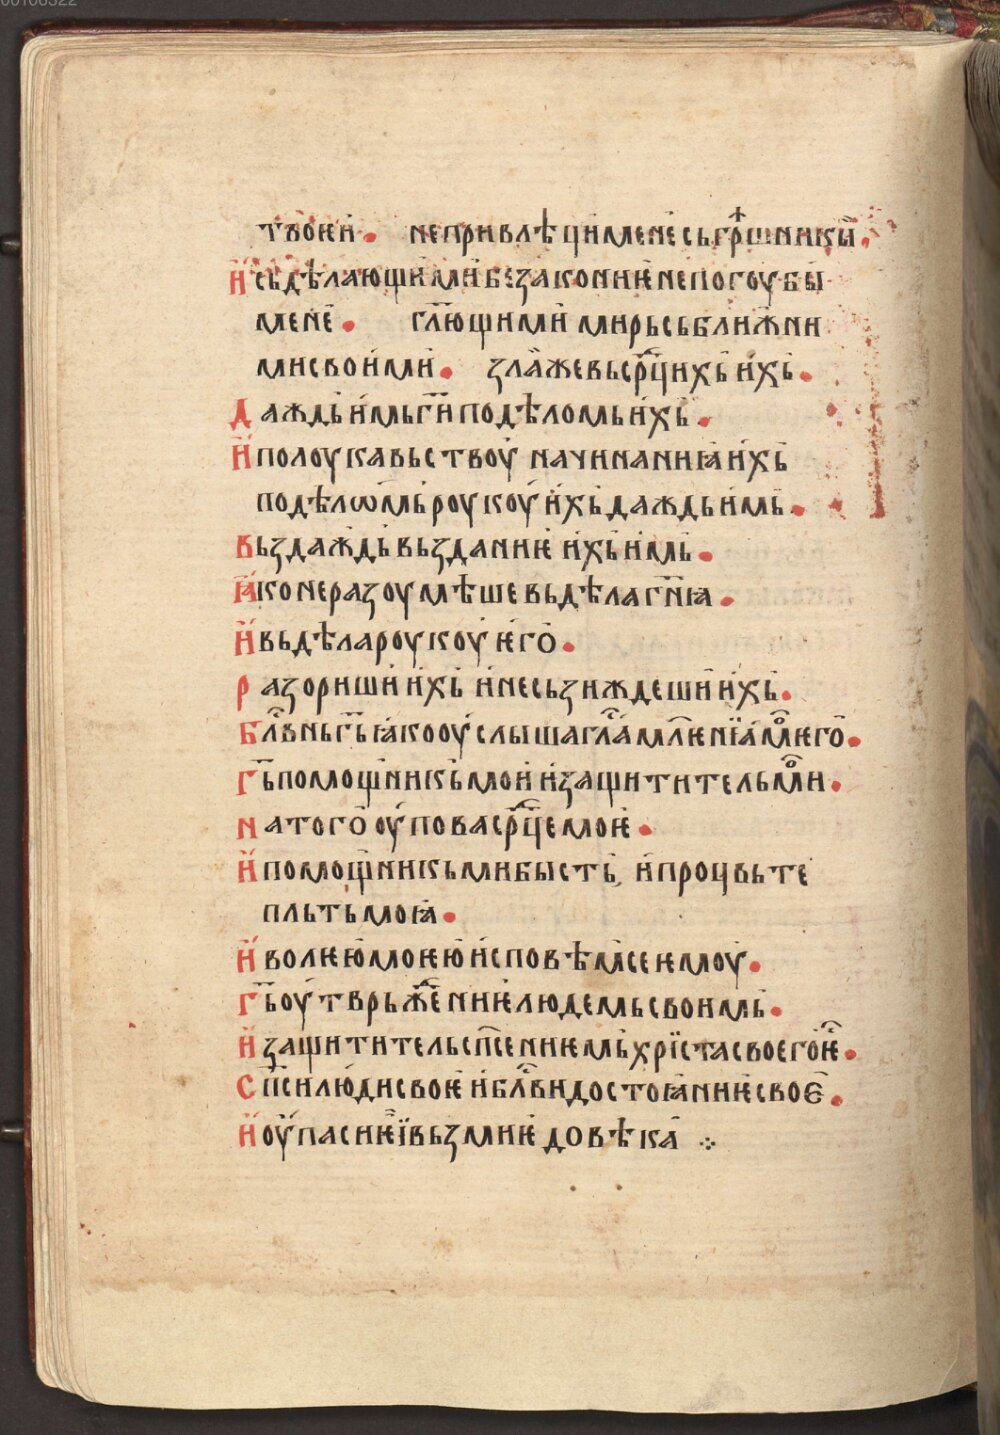 00106322
твоѥи҆. не привлѣци мене съ грѣⷲ҇ники҄.
И҆ съдѣлающими безаконниѥ не погоуби
мене҆. гл҃ющими миръ съ ближни
ми своими. зла҆ же въ ср҃цихь и҆хь.
Даждь и҆мь г҃и по дѣломь и҆хь.
И҆ по лоукавьствоу начинаниꙗ и҆хь
по дѣлѡмь роукоу и҆хь даждь имь.
Въздаждь въздание и҆хь имь.
Ꙗко не разоумѣше въ дѣла г҃нꙗ.
И҆ въ дѣла роукоу ѥго.
Разориши и҆хь и не съзиждеши и҆хь.
Бл҃внь г҃ь ꙗко оуслыша гла҃ мл҃ѥниꙗ моѥго.
Г҃ь помощникь мои и҆ защитительмои.
На того оупова ср҃це моѥ.
И҆ помощникь ми бысть, и процвьте
пльть моꙗ.
И҆ волѥю моѥю исповѣмсе ѥмоу.
Г҃ь оутврьжениѥ людемь своимь.
И҆ защититель сп҃сениѥмь хрїста своегоѥ.
Сп҃си люди своѥ и бл҃ви достоꙗниѥ своє.
И҆ оупаси ѥ ї възми ѥ до вѣка ⁘